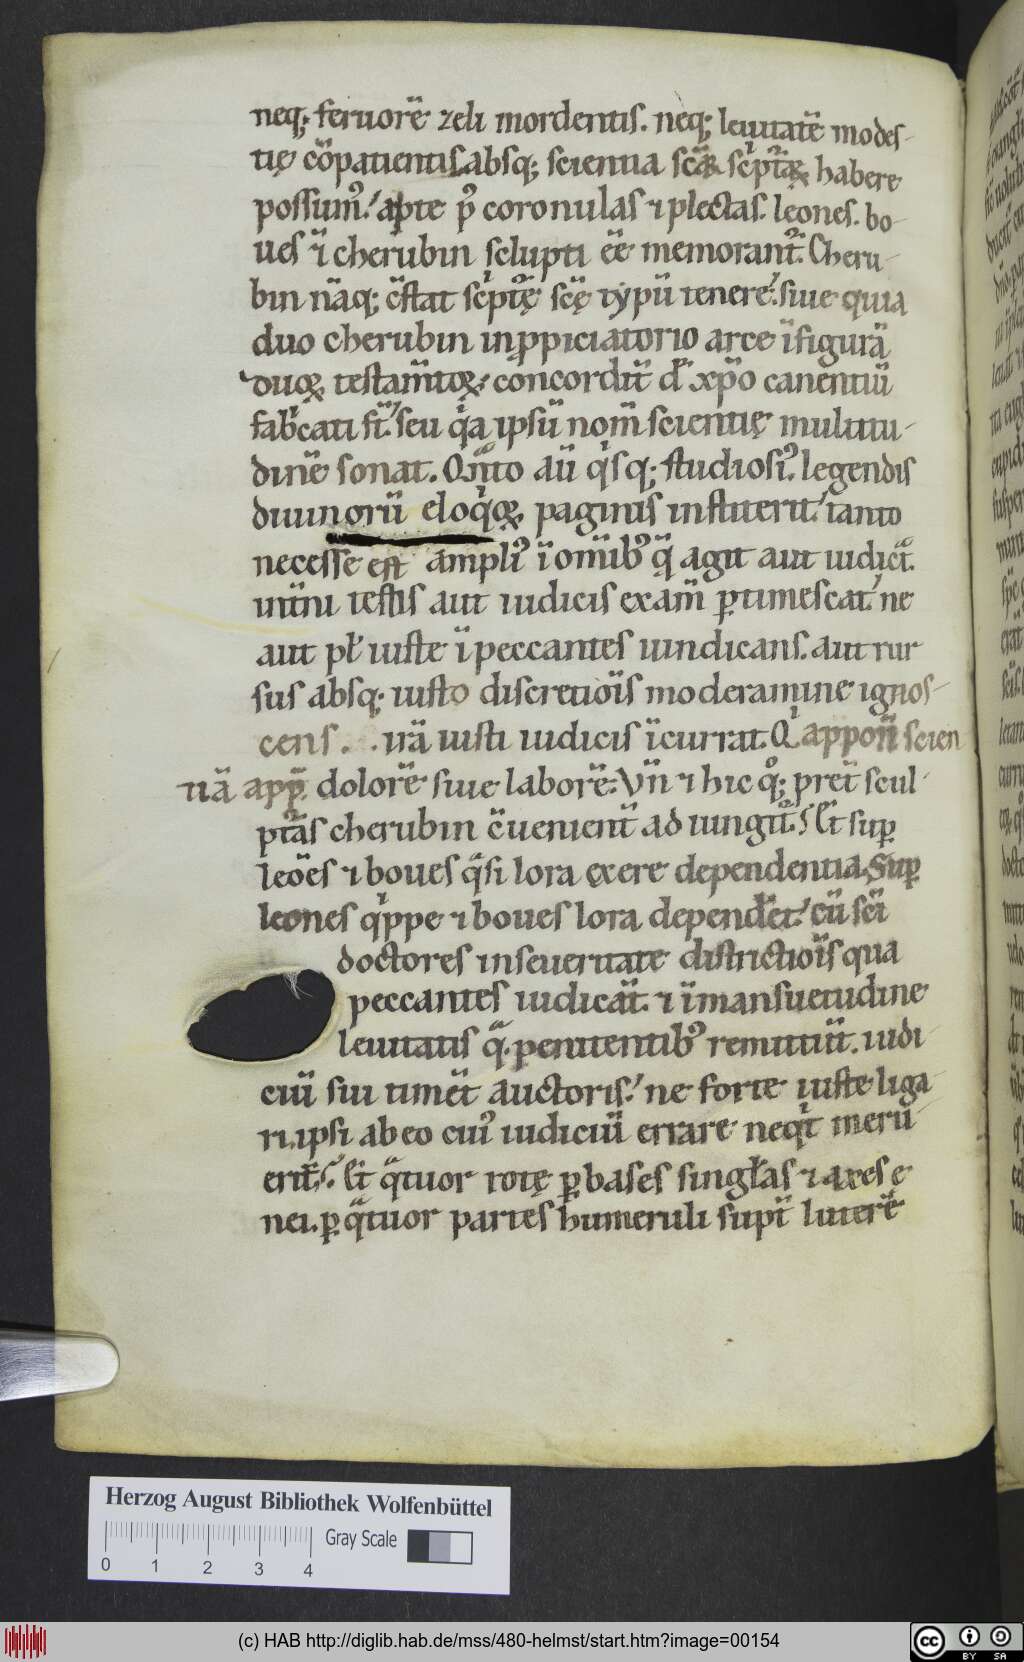 neq; feruorē zeli mordentis. neq; leuitatē modes-
tię cōpatientis absq; scientia scā℞ scpta℞ habere
possum᷒. apte p᷒ coronulas ⁊ plectas. leones. bo-
ues ⁊ cherubin sclupti ēē memorant᷒. Cheru-
bin nāq; c̄stat scptę scę typū tenere. siue quia
duo cherubin in ppiciatorio arce ī figurā
duo℞ testam̄to℞ concordit̄ d̄ xp̄o canentiū
fab̾cati st̄. seu q̾a ipsū nom̄ scientię multitu-
dinē sonat. Qn̄to aū q̾sq; studiosi᷒ legendis
diuinorū eloq̾o℞ paginis institerit. tanto
necesse est ampli᷒ ī om̄ib᷒ q̄ agit aut iudicat᷒.
int̄ni testis aut iudicis exam̄ ptimescat. ne
aut pł iuste ī peccantes uindicans. aut rur
sus absq; iusto discretiōis moderamine ignos-
cens. irā iusti iudicis īcurrat. Q appon̄ scien
tiā app̄. dolorē siue laborē. Vn̄ ⁊ hic q̊; pret̄ scul-
ptas cherubin c̄uenient̄ adiungit᷒. Et sup
leōes ⁊ boues q̾si lora ęxere dependentia. Sup
leones q̾ppe ⁊ boues lora dependet. cū sc̄i
doctores in seueritate districtiōis qua
peccantes iudicāt. ⁊ ī mansuetudine
leuitatis q̾. penitentib᷒ remittūt. iudi-
ciū sui timēt auctoris. ne forte iuste liga-
ri. ipsi ab eo cui᷒ iudiciū errare neq̾t meru-
erit̄. Et q̾tuor rotę p bases singłas ⁊ axes ę-
nei. p q̾tuor partes humeruli supt̄ luterē
Herzog August Bibliothek Wolfenbüttel
Gray Scale
0 1 2 3 4
(c) HAB http://diglib.hab.de/mss/480-helmst/start.htm?image=00154
cc BY SA